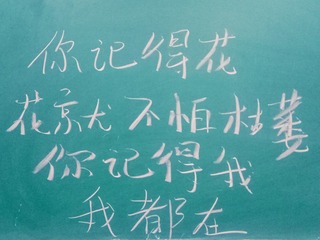 你记得花
花京尤不怕枯萎
你记得我
我都在